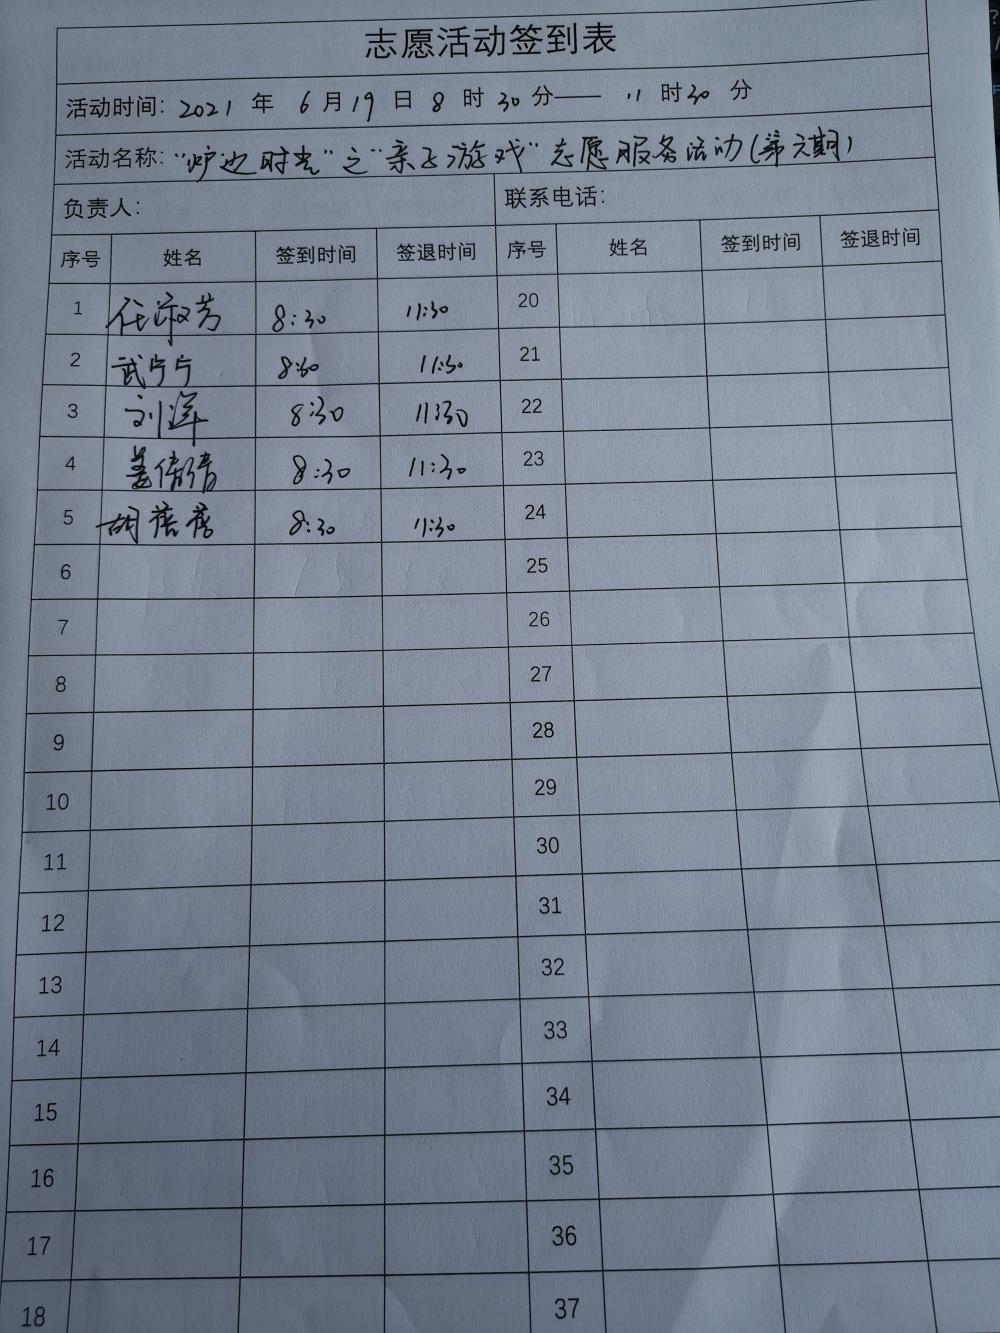 志愿活动签到表
活动时间: 2021 年 6 月 19 日 8 时 30 分—— 11 时 30 分
活动名称: "炉边时光"之"亲子游戏"志愿服务活动(第 期)
负责人: 联系电话:
序号 姓名 签到时间 签退时间 序号 姓名 签到时间 签退时间
1 任淑芳 8:30 11:30 20
2 武宁宁 8:30 11:30 21
3 刘 8:30 11:30 22
4 姜倩倩 8:30 11:30 23
5 胡蓓蓓 8:30 11:30 24
6 25
7 26
8 27
9 28
10 29
11 30
12 31
13 32
14 33
15 34
16 35
17 36
18 37